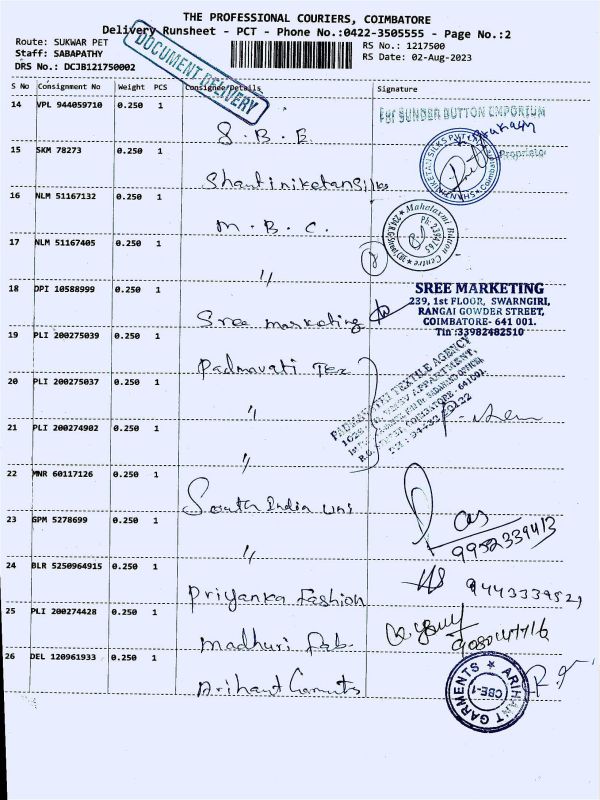 THE PROFESSIONAL COURIERS, COIMBATORE
Delivery Runsheet - PCT - Phone No.:0422-3505555 - Page No.:2
Route: SUKWAR PET
RS No.: 1217500
Staff: SABAPATHY
RS Date: 02-Aug-2023
DRS No.: DCJB121750002
DOCUMENT DELIVERY
S No Consignment No Weight PCS Consignee/Details Signature
14 VPL 944059710 0.250 1
S.B.E
For SUNDER BUTTON EMPORIUM
Proprietor
15 SKM 78273 0.250 1
Shantiniketan Silks
SHANTINIKETAN SILKS PVT Coimbatore
16 NLM 51167132 0.250 1
M.B.C.
Mahalaxmi Button Centre
17 NLM 51167405 0.250 1
"
18 DPI 10588999 0.250 1
Sree marketing
SREE MARKETING
239, 1st FLOOR, SWARNGIRI,
RANGAI GOWDER STREET,
COIMBATORE- 641 001.
Tin :33982482510
19 PLI 200275039 0.250 1
Padmavati Tex
TEXTILE AGENCY
20 PLI 200275037 0.250 1
"
21 PLI 200274902 0.250 1
"
22 MNR 60117126 0.250 1
South India Uni
23 GPM 5278699 0.250 1
"
9952339413
24 BLR 5250964915 0.250 1
Priyanka Fashion
25 PLI 200274428 0.250 1
Madhuri Fab.
26 DEL 120961933 0.250 1
Arihant Garments
ARIHANT GARMENTS
CBE-1